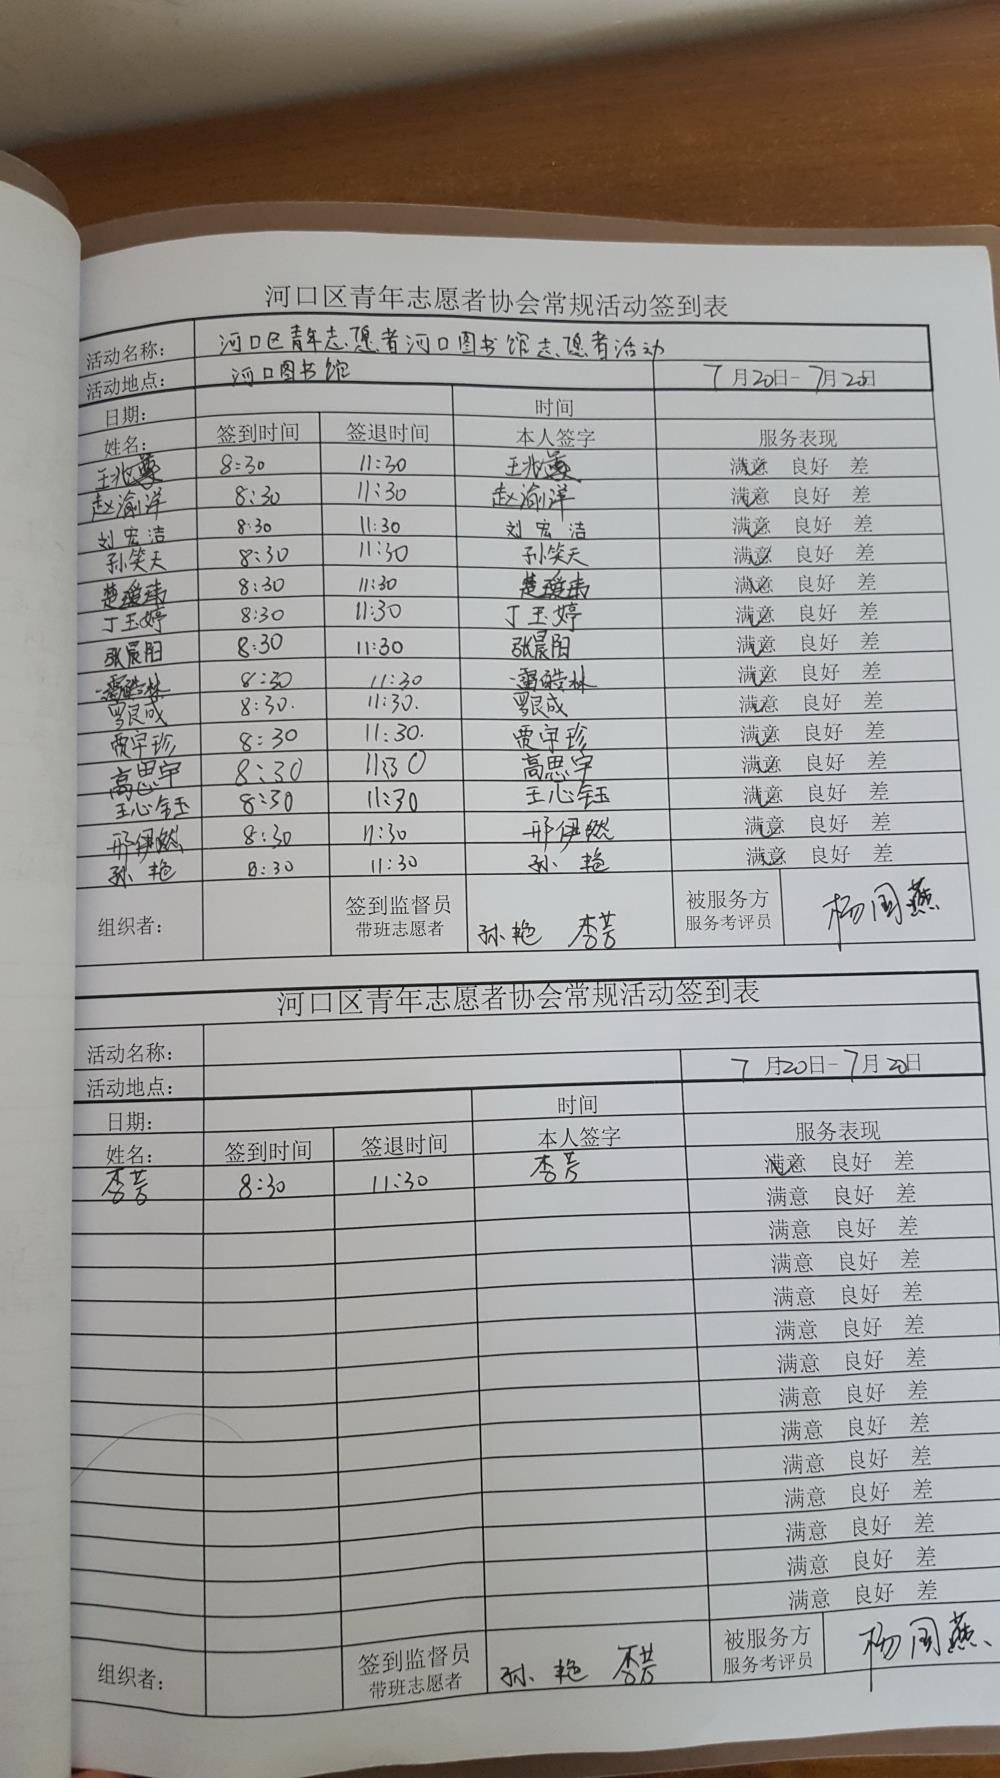 河口区青年志愿者协会常规活动签到表
活动名称： 河口区青年志愿者河口图书馆志愿者活动
活动地点： 河口图书馆 7月20日-7月20日
日期： 时间
姓名： 签到时间 签退时间 本人签字 服务表现
王兆 8:30 11:30 王兆 满意 良好 差
赵渝洋 8:30 11:30 赵渝洋 满意 良好 差
刘宏洁 8:30 11:30 刘宏洁 满意 良好 差
孙笑天 8:30 11:30 孙笑天 满意 良好 差
楚瑷玮 8:30 11:30 楚瑷玮 满意 良好 差
丁玉婷 8:30 11:30 丁玉婷 满意 良好 差
张晨阳 8:30 11:30 张晨阳 满意 良好 差
皓林 8:30 11:30 皓林 满意 良好 差
罗良成 8:30. 11:30. 罗良成 满意 良好 差
贾宇珍 8:30 11:30. 贾宇珍 满意 良好 差
高思宇 8:30 11:30 高思宇 满意 良好 差
王心钰 8:30 11:30 王心钰 满意 良好 差
邢伊然 8:30 11:30 邢伊然 满意 良好 差
孙艳 8:30 11:30 孙艳 满意 良好 差
组织者： 签到监督员 孙艳 李芳 被服务方 杨国燕
带班志愿者 服务考评员
河口区青年志愿者协会常规活动签到表
活动名称：
活动地点： 7月20日-7月20日
日期： 时间
姓名： 签到时间 签退时间 本人签字 服务表现
李芳 8:30 11:30 李芳 满意 良好 差
满意 良好 差
满意 良好 差
满意 良好 差
满意 良好 差
满意 良好 差
满意 良好 差
满意 良好 差
满意 良好 差
满意 良好 差
满意 良好 差
满意 良好 差
满意 良好 差
满意 良好 差
组织者： 签到监督员 孙艳 李芳 被服务方 杨国燕
带班志愿者 服务考评员